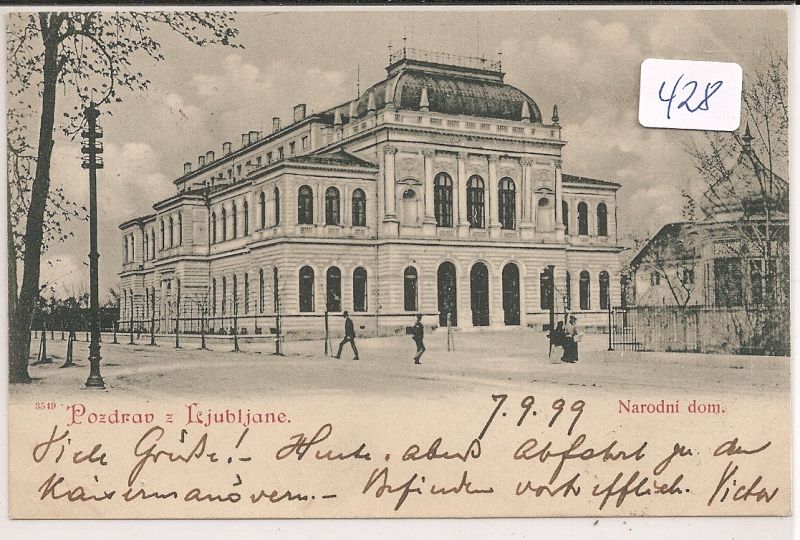 428
3549 Pozdrav z Ljubljane.
7.9.99
Narodni dom.
Viele Grüße! – Heute abend Abfahrt zu den
Kaisermanövern. – Befinden vortrefflich. Victor